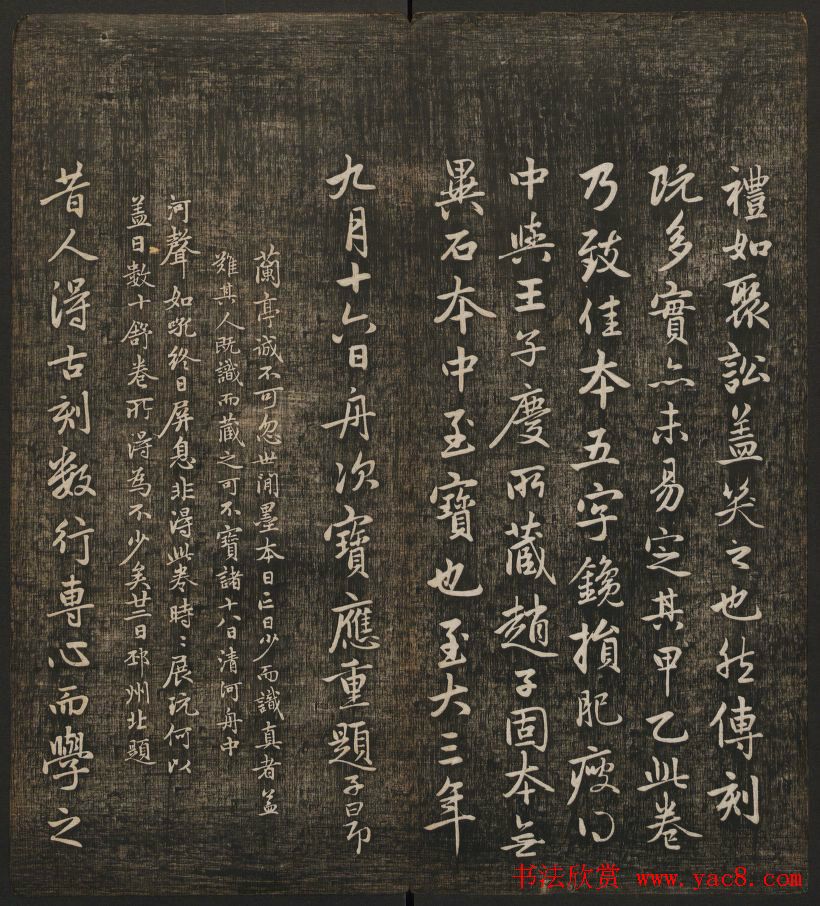 禮如聚訟蓋笑之也然傳刻
既多實亦未易定其甲乙此卷
乃致佳本五字鑱損肥瘦得
中與王子慶所藏趙子固本無
異石本中至寶也至大三年
九月十六日舟次寶應重題子昂
蘭亭誠不可忽世間墨本日亡日少而識真者益
難其人既識而藏之可不寶諸十八日清河舟中
河聲如吼終日屏息非得此卷時〻展玩何以
盖日數十舒卷所得為不少矣廿二日邳州北題
昔人得古刻数行專心而學之
书法欣赏 www.yac8.com